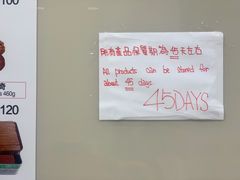 奇
460g
120
100
所有產品保質期為45天左右
All products can be stored for
about 45 days
45DAYS